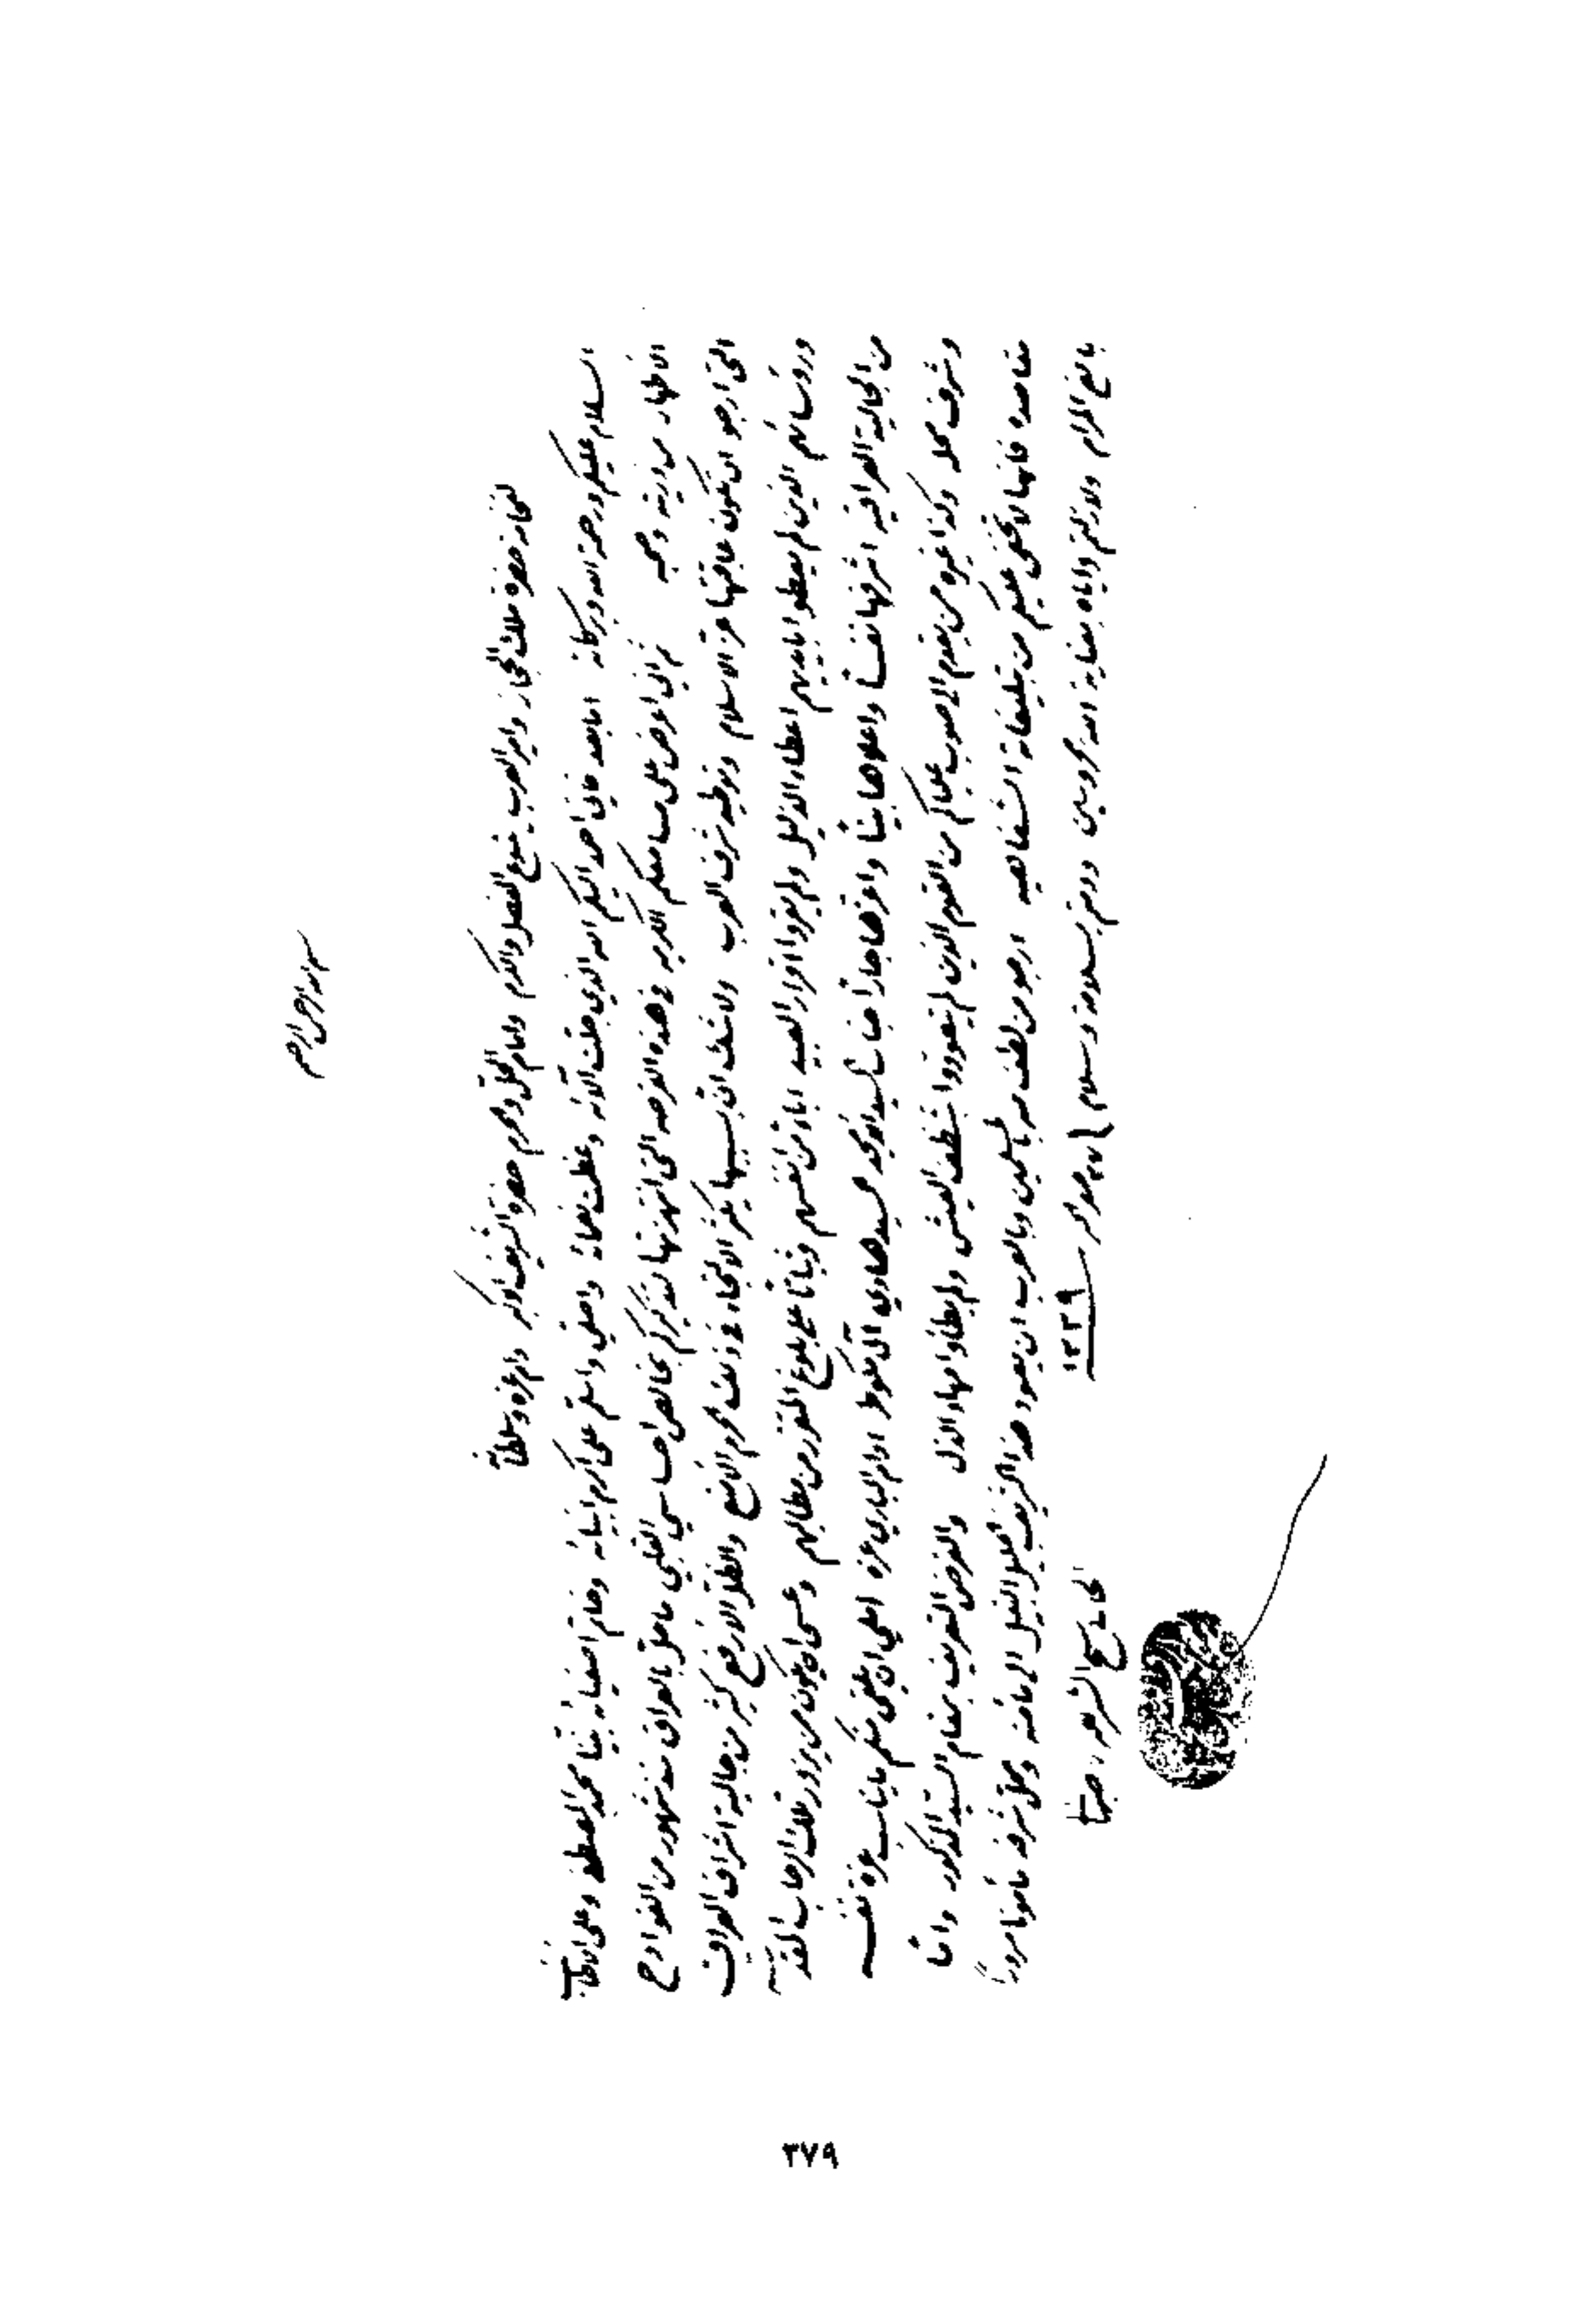 بسم الله الرحمن الرحيم
لحضرة ملك الحجاز وامير العرب ينبوع الفضل والكرم وامام الحل والحرم حضرة الشريف الاكبر دام عزه وسلطانه
السلام عليكم ورحمة الله وبركاته اما بعد فاني احمد اليكم الله الذي جلت آلائه وعظمت نعمائه واصلي واسلم على اكرم انبيائه وخاتم اصفيائه نبينا محمد المصطفى وعلى
الاطهار من ذريته وصحبه ثم اني اعرض على مسامعكم الكريمة في هذه الفرصة التي انتهزتها لتذكيركم بخالص احساسي القلبي ما حل بالعراق منذ شهور من الفوادح
التي ارجو ان تكون عاقبتها عز الاسلام وتوطيد شرف العرب ولا شك ان بسببها يكثر الالتجاء في ذلك الحرم الامنع والظل الارفع كثير من جالية اشراف العراق
ورؤسائهم الذين لم يعطوا بايديهم اعطاء الذليل ولم يقروا اقرار العبيد اباءً من انفسهم وثباتاً على بلوغ المقرر من مطالبهم وعسى ان يكون من يزور تلك الرحاب المقدسة
من الجالية العراقية اشرفها نفساً واعلاها بيتاً واعزها جاراً جناب السيد نور محمد حميد هادي آل مكوطر ادام الباري عزه املي ان يلقى منكم ما يناسب عزة نفسه
وشرف محله وكذا غيره ممن يقدم الاصوب علاكم من القوم الذين لم يتعودوا شظف العيش ولم يطأوا مهاد الذل والغرض التعريف بمقام السيد المذكور واما
مقاصده فانها لا تخفى عليكم من تبليغاته الشفاهية ارجو من لطف الله بالمسلمين وبالعرب ان يعود هذا الشريف قليل الثقيل الى مأمنه ومحل شرفه مأموناً مسروراً
بالغ المرام ولا زلتم واياه بعناية الله محروسين ودمتم بسلامة وسلام ١٣٣٩
شيخ الشريعة الاصفهاني
٣٧٩